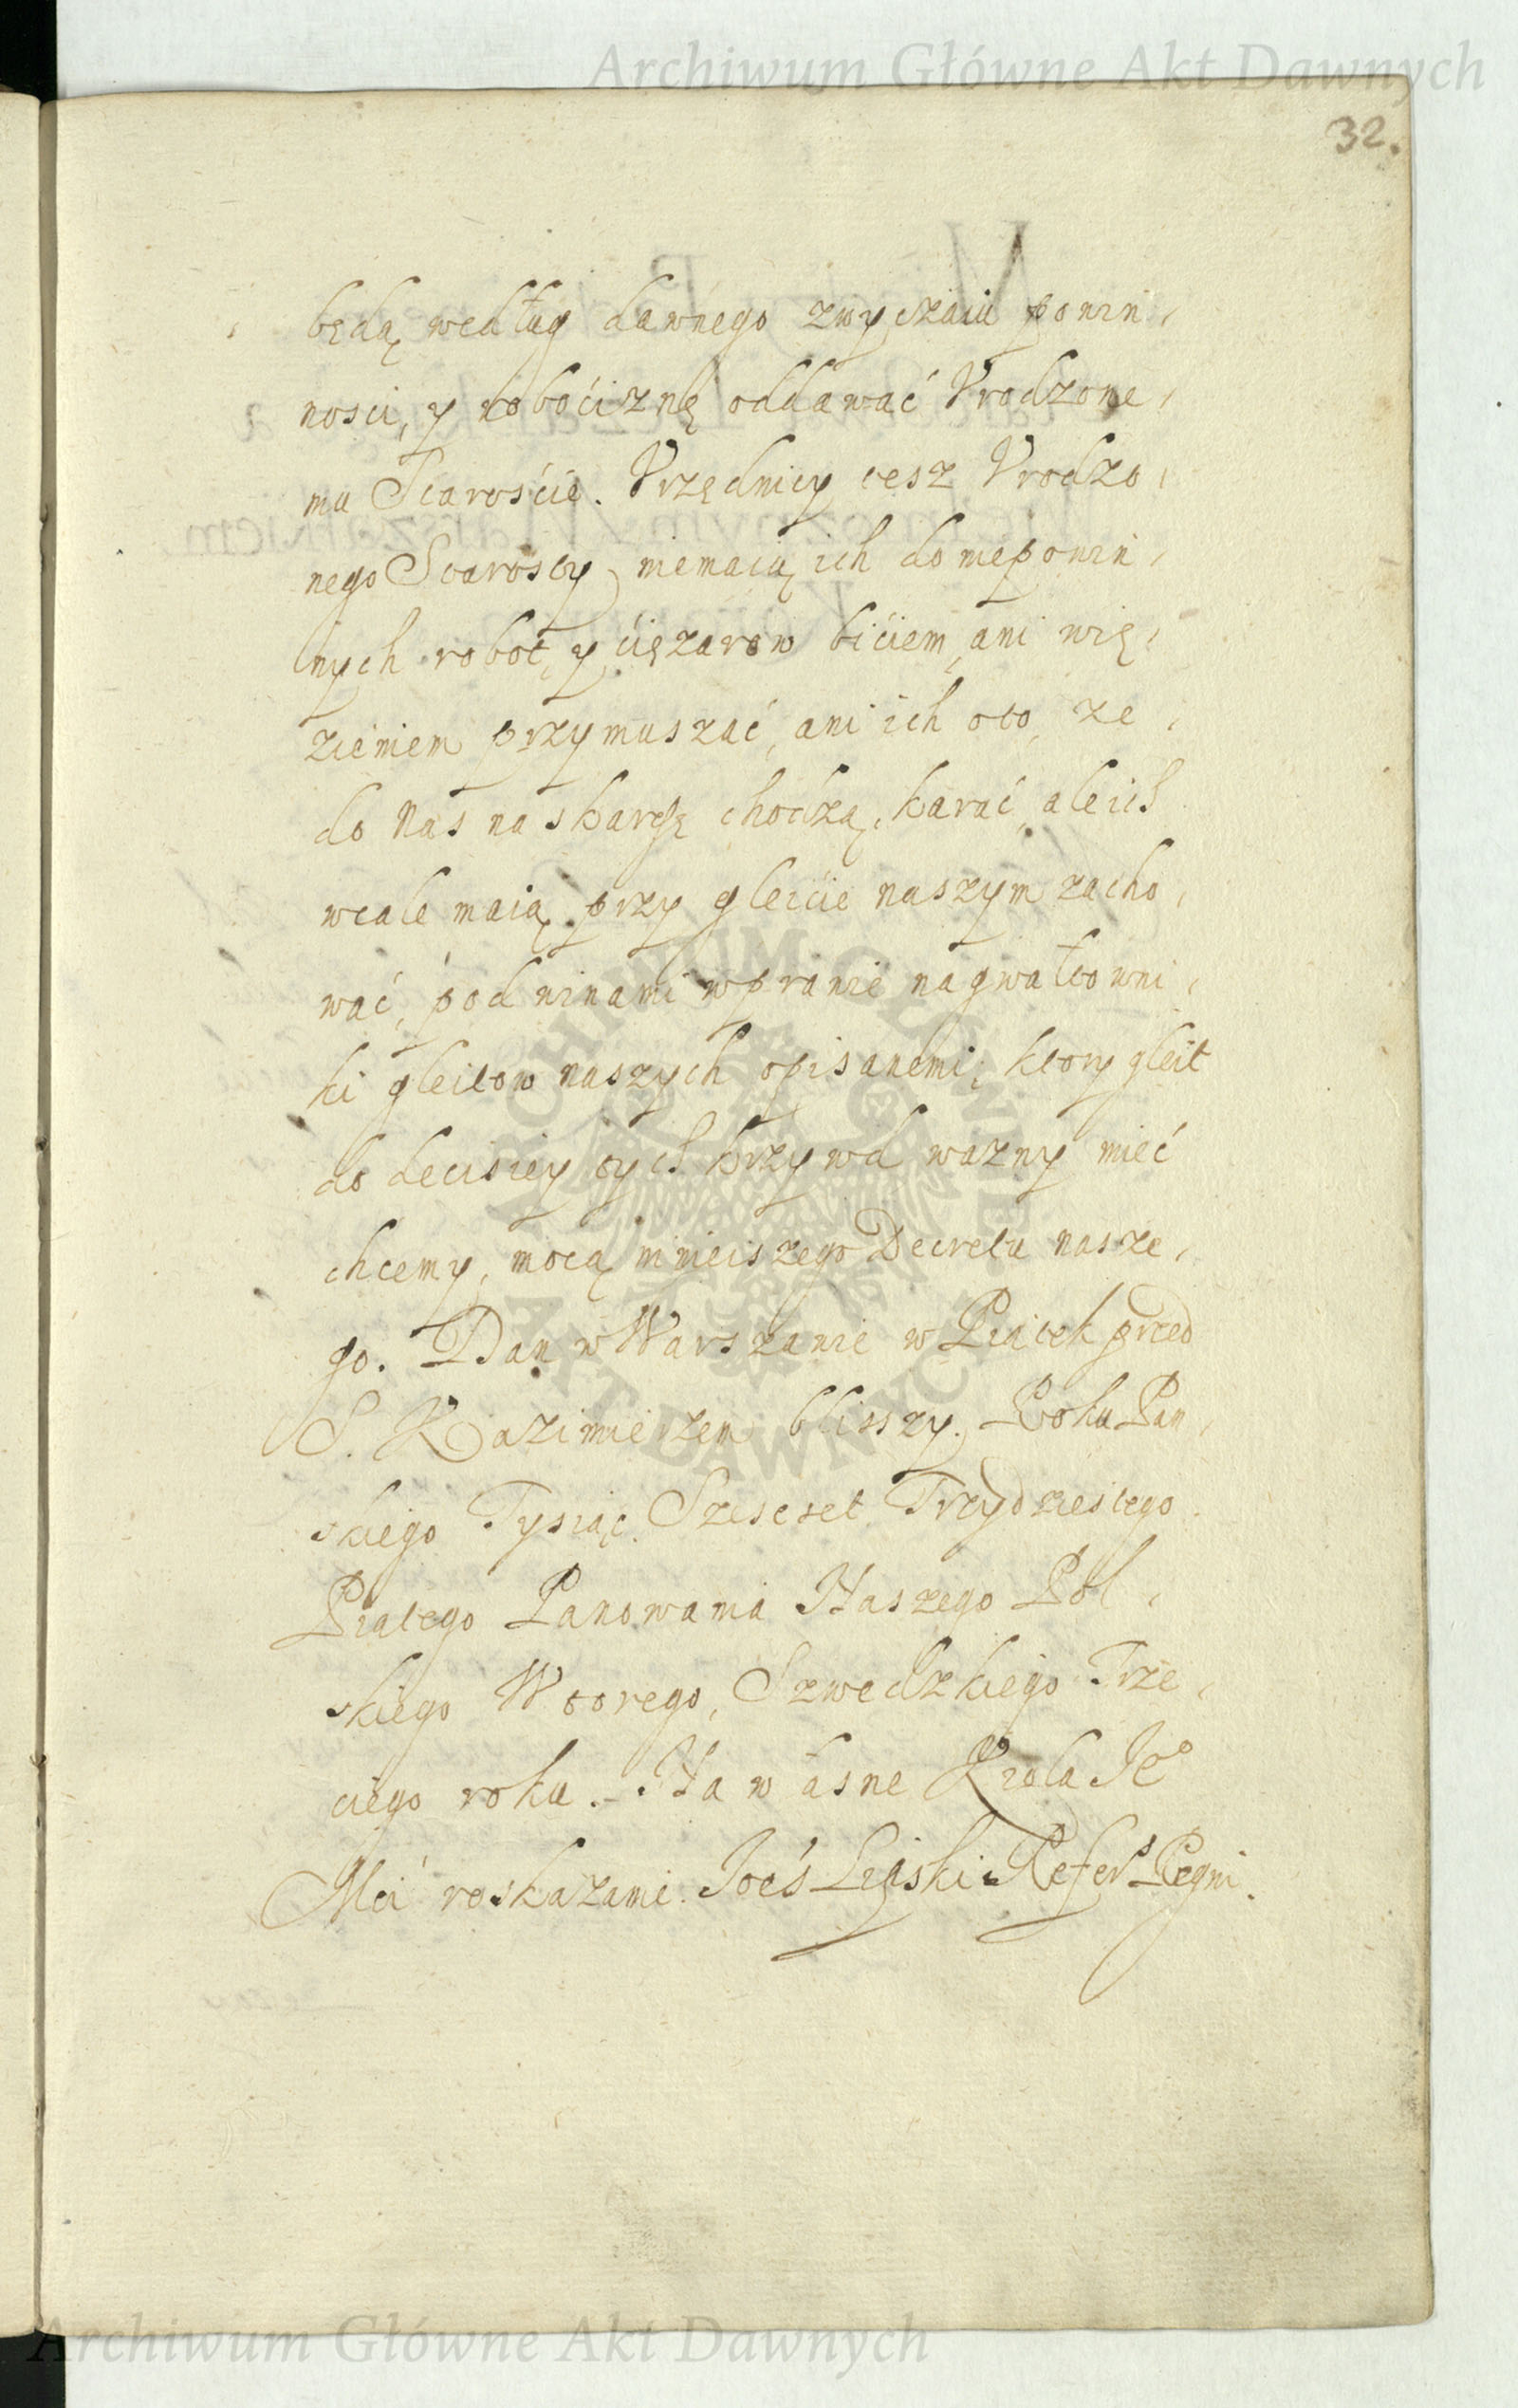 Archiwum Główne Akt Dawnych
32.
będą według dawnego zwyczaiu powin,
nosci, y robociznę oddawać Vrodzone,
mu Staroście. Vrzędnicy tesz Vrodzo,
nego Starosty niemaią ich do niepowin,
nych robot, y ciężarow biciem, ani wię,
zieniem przymuszać, ani ich oto, ze,
do Nas na skargę chodzą, karać, ale ich
wcale maią przy gleicie naszym zacho,
wać, pod winami wprawie na gwałtowni,
ki gleitow naszych opisanemi, ktory gleit
do decisiey tych krzywd wazny mieć
chcemy, mocą ninieiszego Decretu nasze,
go. Dan w Warszawie w Piątek przed
S. Kazimierzem bliszszy. Roku Pan,
skiego Tysiąc Szescset Trzydziestego
Piątego Panowania Naszego Pol,
skiego Wtorego, Szwedzkiego Trze,
ciego roku. Na własne Krola Je°
Mci roskazanie. Joēs Lipski Refer Regni.
ARCHIWUM GŁÓWNE AKT DAWNYCH
Archiwum Główne Akt Dawnych